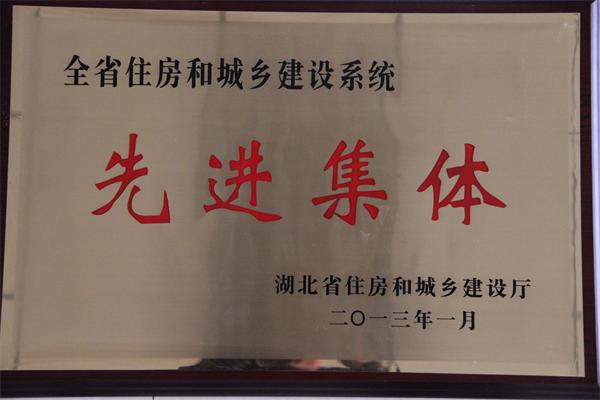 全省住房和城乡建设系统
先进集体
湖北省住房和城乡建设厅
二〇一三年一月